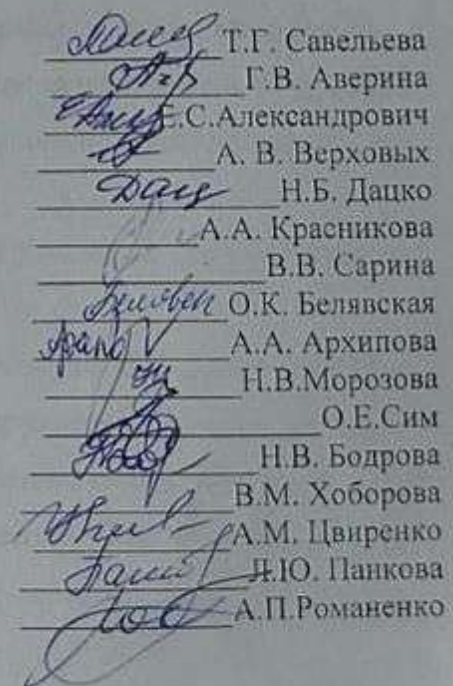 Т.Г. Савельева
Г.В. Аверина
Е.С.Александрович
А. В. Верховых
Н.Б. Дацко
А.А. Красникова
В.В. Сарина
О.К. Белявская
А.А. Архипова
Н.В.Морозова
О.Е.Сим
Н.В. Бодрова
В.М. Хоборова
А.М. Цвиренко
Л.Ю. Панкова
А.П.Романенко